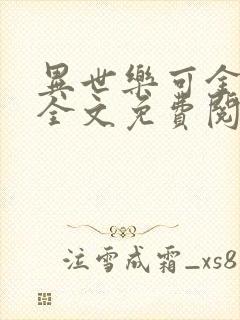 異世樂可全
全文免費閱
泣雪成霜_xs8